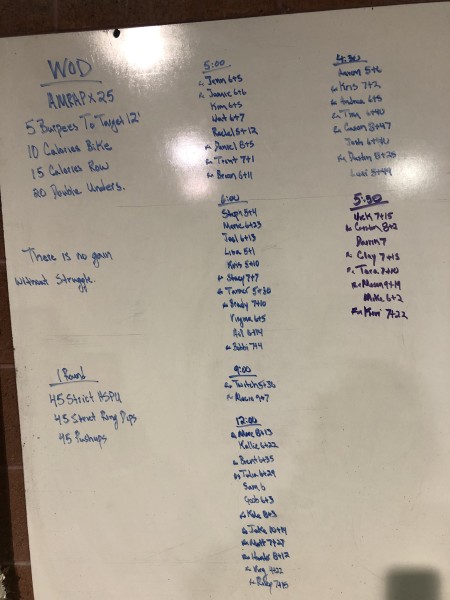 WOD
AMRAP x 25
5 Burpees To Target 12"
10 Calories Bike
15 Calories Row
20 Double Unders.
There is no gain
without struggle.
1 Round
45 Strict HSPU
45 Strict Ring Dips
45 Pushups
5:00
Jenn 6+5
Jamie 6+6
Kim 6+5
6+7
Rachel 5+12
Rx Daniel 8+5
Rx Trent 7+1
Rx Brian 6+11
6:00
Steph 5+4
6+23
Joel 6+13
Lisa 5+1
Kris 5+10
Rx Stacy 7+7
Rx Turner 5+30
Rx Brady 7+10
6+5
6+14
Rx Bobbi 7+4
9:00
5+36
9+7
12:00
8+13
Kellie 6+22
Rx Brent 6+35
Rx Julia 6+29
Sam 6
6+3
8+3
Rx Jake 10+19
Rx Matt 7+27
Rx Hunter 8+12
4+22
Rx Riley
4:30
Aaron 5+6
Rx Kris 7+2
Rx Andrea 6+5
Rx Tim 6+40
Rx Cason 8+47
Josh 6+40
Rx Dustin 8+25
5+49
5:30
Nick 7+15
8+2
Darrin 7
Rx Clay 7+13
Rx Tara
Rx Mason 9+19
Mike 6+2
Rx Kori 7+22